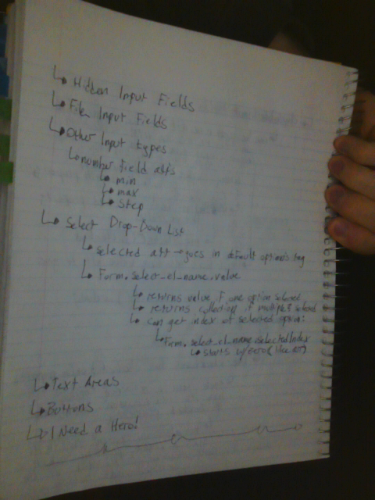 ↳ Hidden Input Fields
↳ File Input Fields
↳ Other Input types
↳ number field atts
↳ min
↳ max
↳ step
↳ Select Drop-Down List
↳ selected att → goes in default option's tag
↳ Form.select_el_name.value
↳ returns value if one option selected
↳ returns collection if multiple selected
↳ can get index of selected option:
↳ Form.select_el_name.selectedIndex
↳ starts @ zero
↳ Text Areas
↳ Buttons
↳ I Need a Hero!